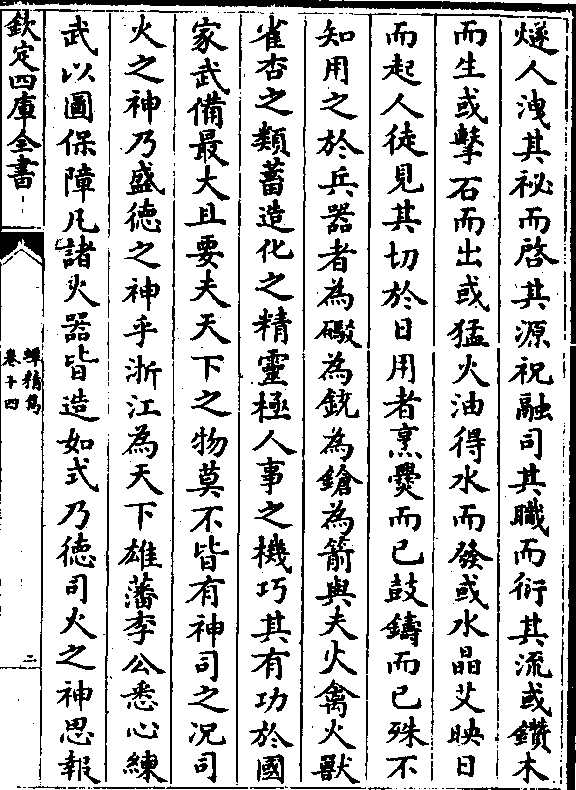 燧人洩其祕而啓其源祝融司其職而衍其流或鑽木
而生或擊石而出或猛火油得水而發或水晶艾映日
而起人徒見其切於日用者烹爨而已鼓鑄而已殊不
知用之於兵器者為礮為銃為鎗為箭與夫火禽火獸
雀杏之類蓄造化之精靈極人事之機巧其有功於國
家武備最大且要夫天下之物莫不皆有神司之况司
火之神乃盛德之神乎浙江為天下雄藩李公悉心練
武以圖保障凡諸火器皆造如式乃德司火之神思報
欽定四庫全書
蟫精雋
卷十四
二